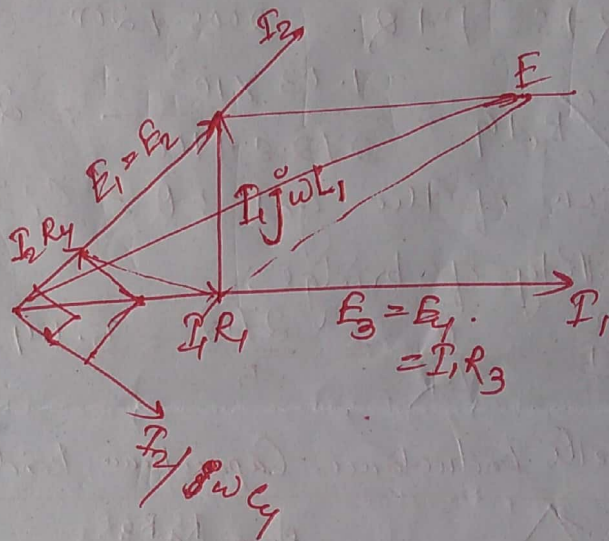 I2
E
E1 = E2
I1 jωL1
I2 R4
I1 R1
E3 = E4.
= I1 R3
I1
I2/jωC4